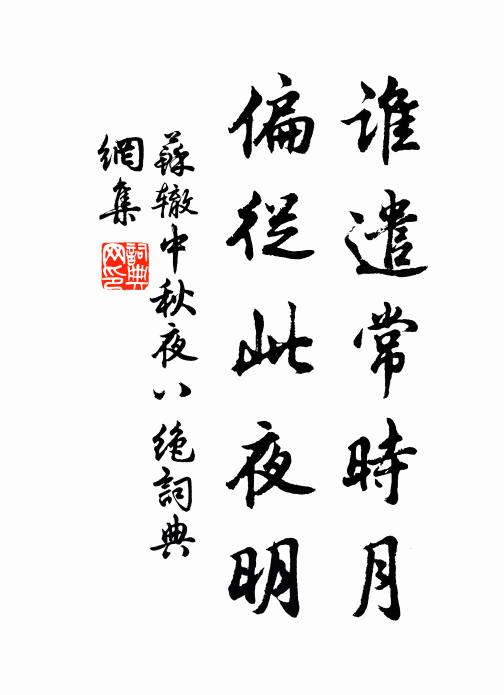 誰遣常時月
偏從此夜明
蘇轍中秋夜八絕詞典
網集
詞典
网印